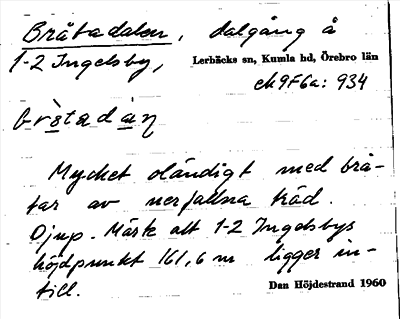 Bråtadalen, dalgång å
1-2 Ingelsby,
Lerbäcks sn, Kumla hd, Örebro län
ek 9F6a: 934
Mycket oländigt med brå-
tar av nerfallna träd.
Djup. Märk att 1-2 Ingelsbys
höjdpunkt 161,6 m ligger in-
till.
Dan Höjdestrand 1960